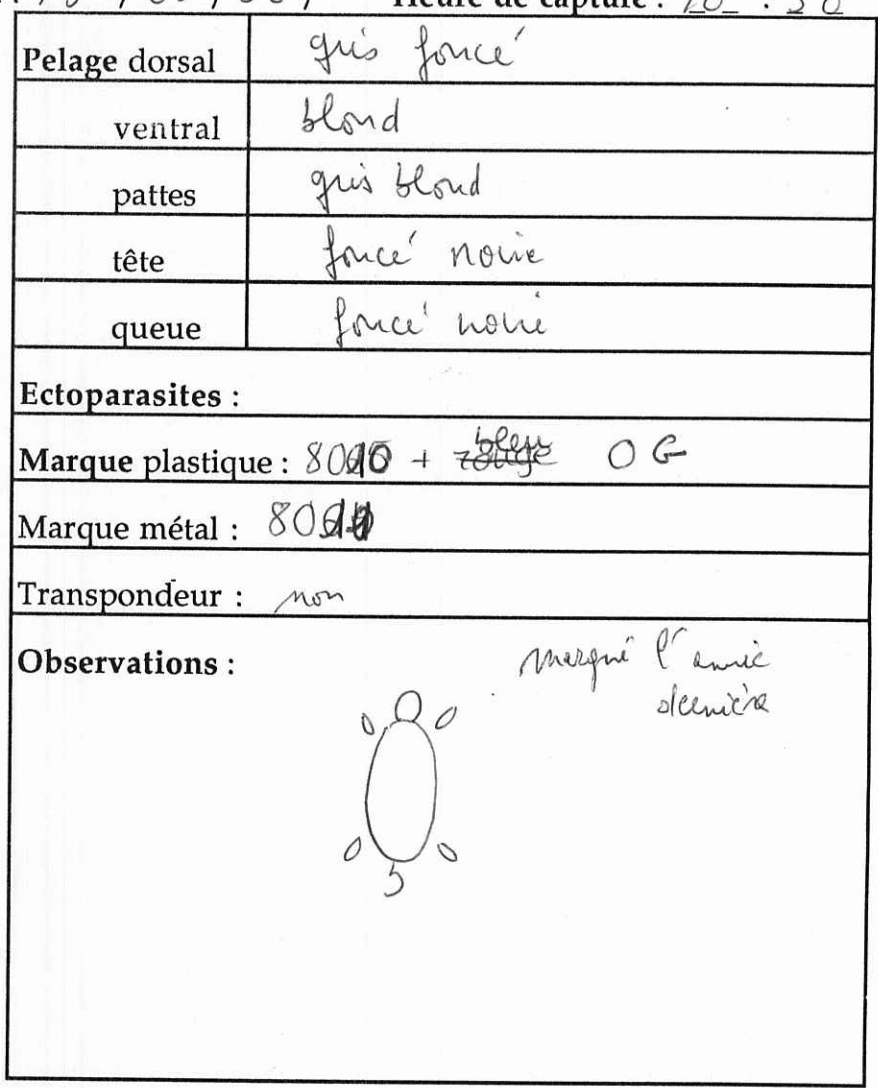 Heure de capture :
Pelage dorsal gris foncé
ventral blond
pattes gris blond
tête foncé noire
queue foncé noire
Ectoparasites :
Marque plastique : + bleu OG
Marque métal :
Transpondeur : non
Observations : marqué l'année
dernière